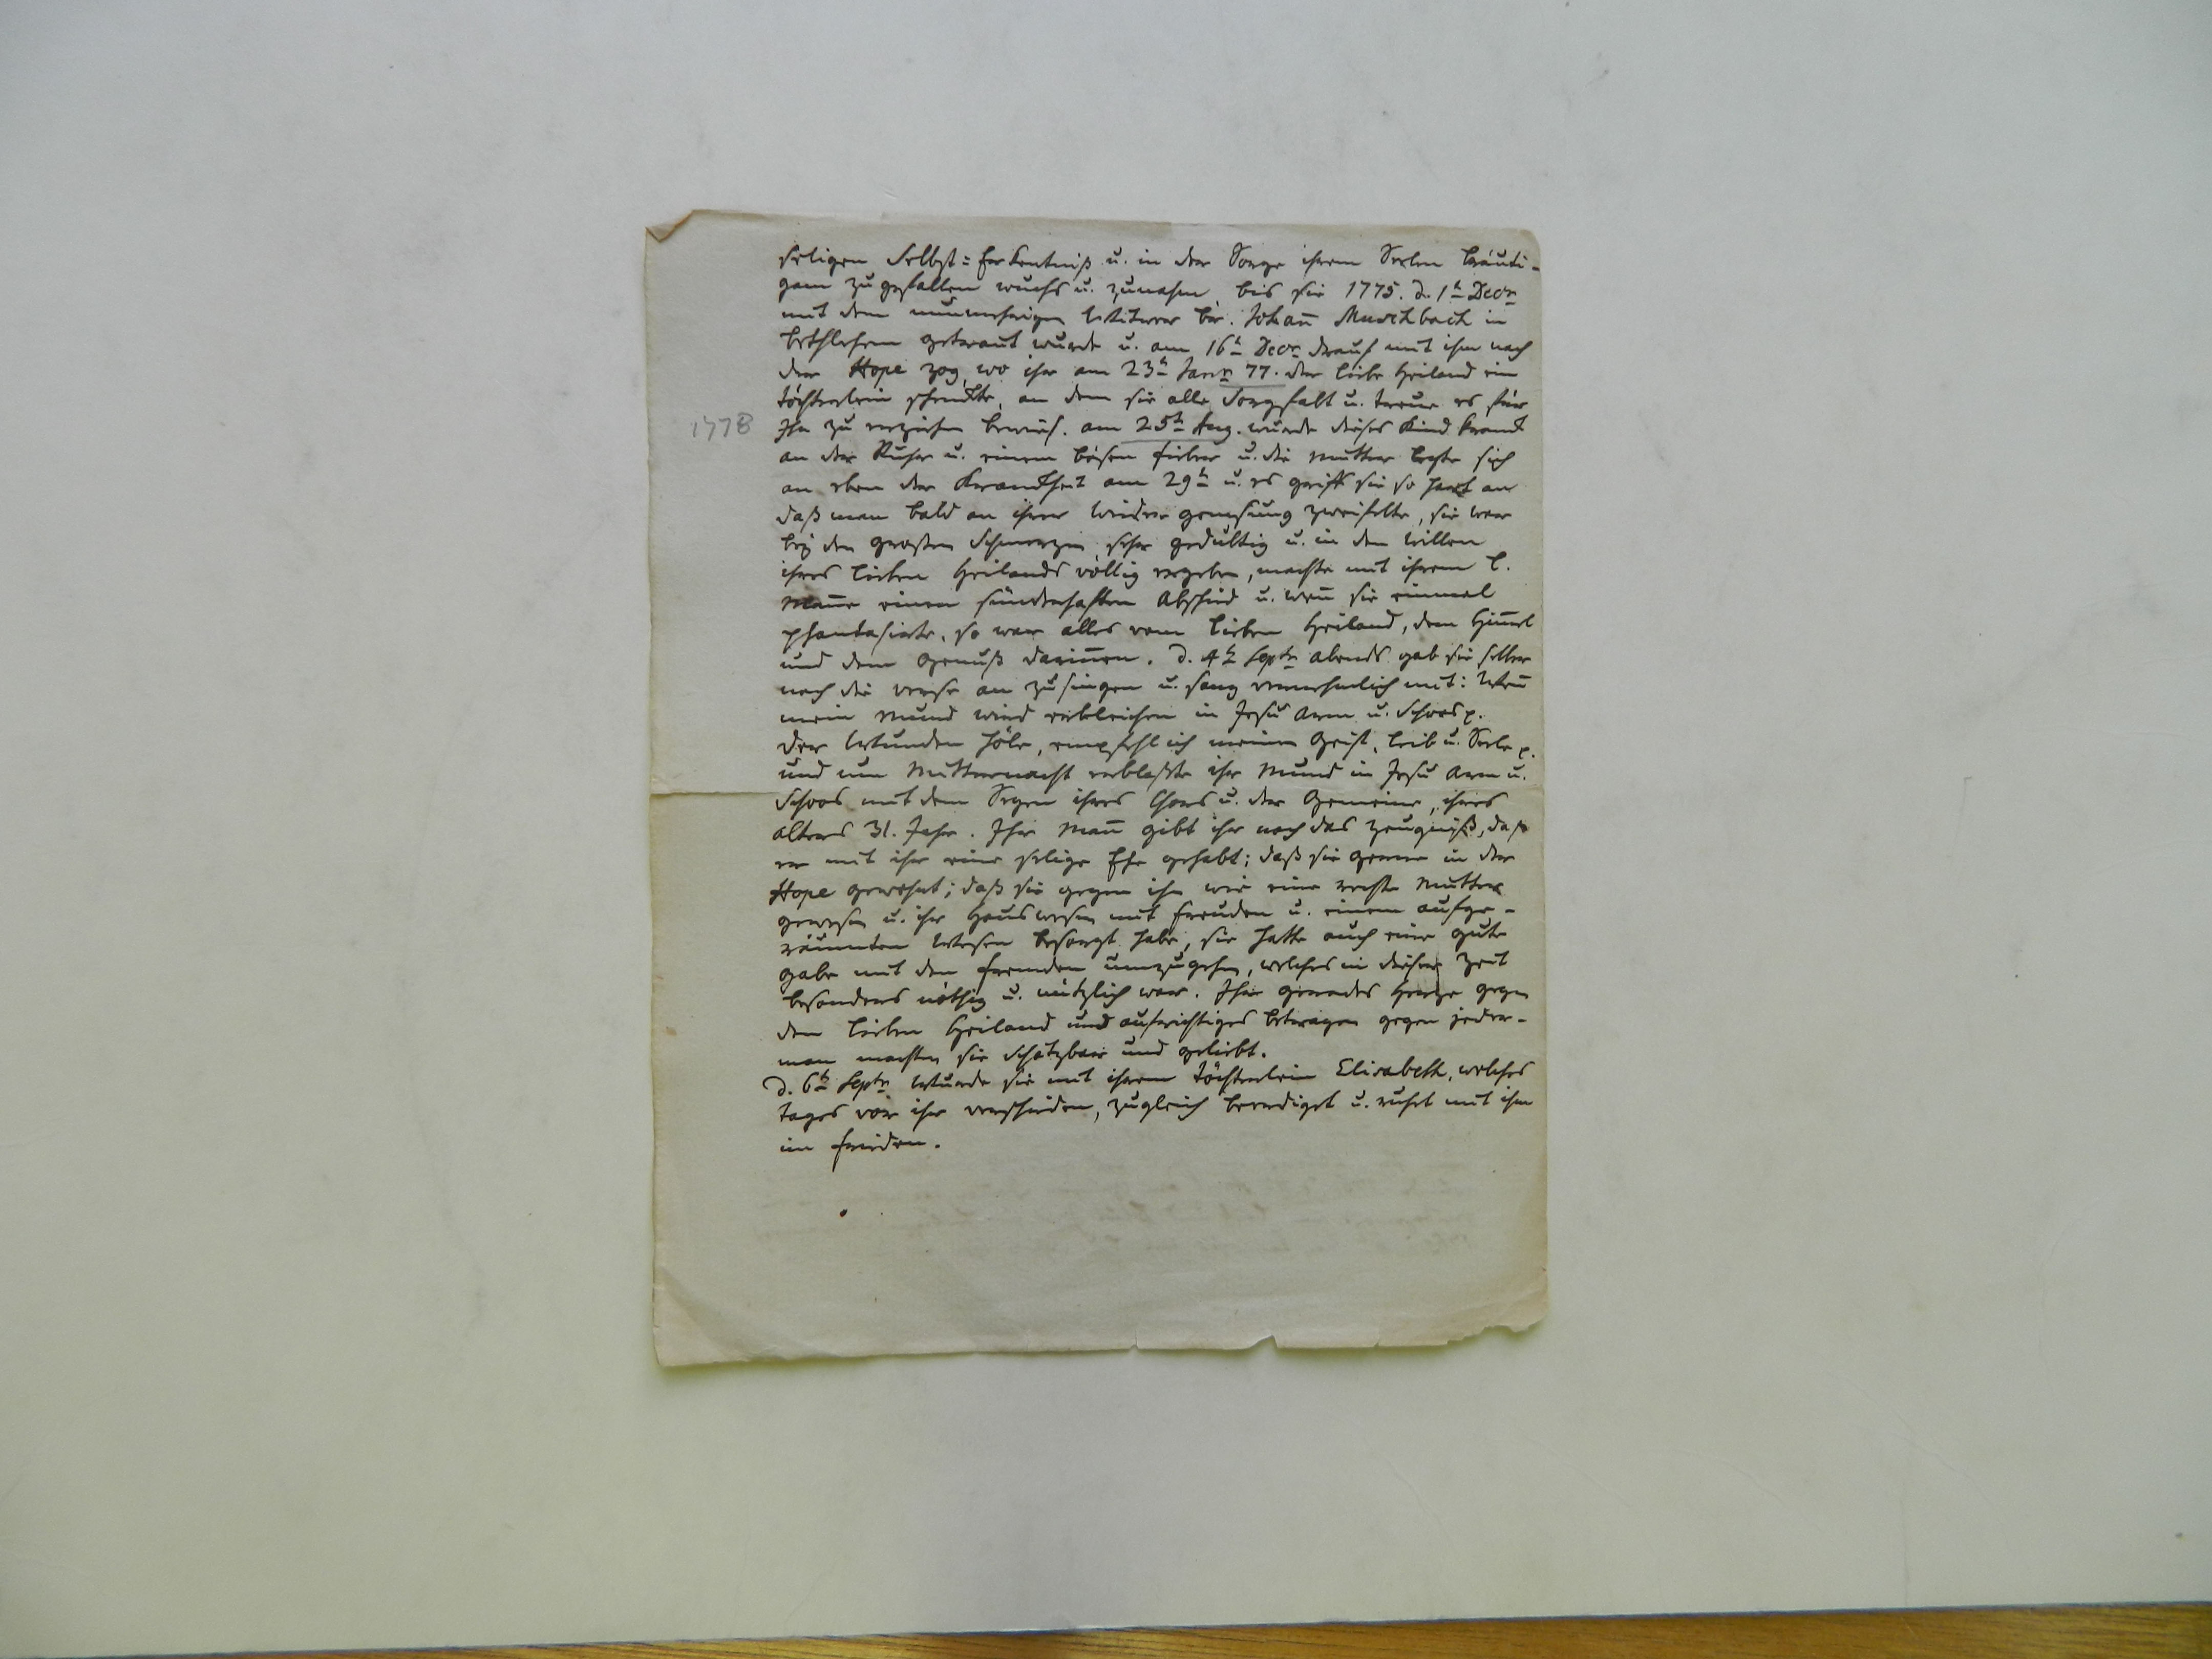 seligen Selbst=Erkentniß u. in der Sorge ihrem Seelen Bräuti-
gam zu gefallen wuchs u. zunahm, bis sie 1775. d. 1t Decr
mit dem nunmehrigen Wittwer Br. Johan̄ Muschbach in
Bethlehem getraut wurde u. am 16t Decr drauf mit ihm nach
der Hope zog, wo ihr am 23t Janr 77. der liebe Heiland ein
Töchterlein schenckte, an dem sie alle Sorgfalt u. Treue es für
1778
Ihn zu erziehen bewieß. am 25t Aug. wurde dieses Kind kranck
an der Ruhr u. einem bösen Fieber u. die Mutter legte sich
an eben der Kranckheit am 29t u. es griff sie so hart an
daß man bald an ihrer Wieder genesung zweifelte, sie war
bey den großen Schmerzen, sehr gedultig u. in den Willen
ihres lieben Heilands völlig ergeben, machte mit ihrem l.
Man̄e einen sünderhaften Abschied u. wen̄ sie einmal
phantasirte, so war alles vom lieben Heiland, dem Him̄el
und dem Genuß darin̄en. d. 4t Septr abends gab sie selber
noch die Verse an zu singen u. sang vernehmlich mit: Wen̄
mein Mund wird erbleichen in Jesu Arm u. Schoos p.
Der Wunden Höle, empfehl ich meinen Geist, Leib u. Seele p.
und um Mitternacht erblaßte ihr Mund in Jesu Arm u.
Schoos mit dem Segen ihres Chors u. der Gemeine, ihres
alters 31. Jahr. Ihr Man̄ gibt ihr noch das Zeugniß, daß
er mit ihr eine selige Ehe gehabt; daß sie gerne in der
Hope gewohnt; daß sie gegen ihn wie eine rechte Mutter
gewesen u. ihr Hauswesen mit Freuden u. einem aufge-
räumten Wesen besorgt habe, sie hatte auch eine gute
Gabe mit den Fremden umzugehen, welches in dieser Zeit
besonders nöthig u. nützlich war. Ihr gerades Herze gegen
den lieben Heiland und aufrichtiges Betragen gegen jeder-
man machten sie Schätzbar und geliebt.
D. 6t Septr Wurde sie mit ihrem Töchterlein Elisabeth, welches
tages vor ihr verschieden, zugleich beerdiget u. ruhet mit ihm
im Frieden.